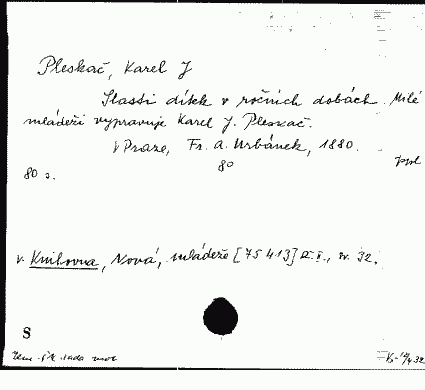 Pleskač, Karel J
Slasti dítek v ročních dobách. Milé
mládeži vypravuje Karel J. Pleskač.
V Praze, Fr. A. Urbánek, 1880.
80
80 s.
v. Knihovna, Nová, mládeže [75413] II., sv. 32.
S